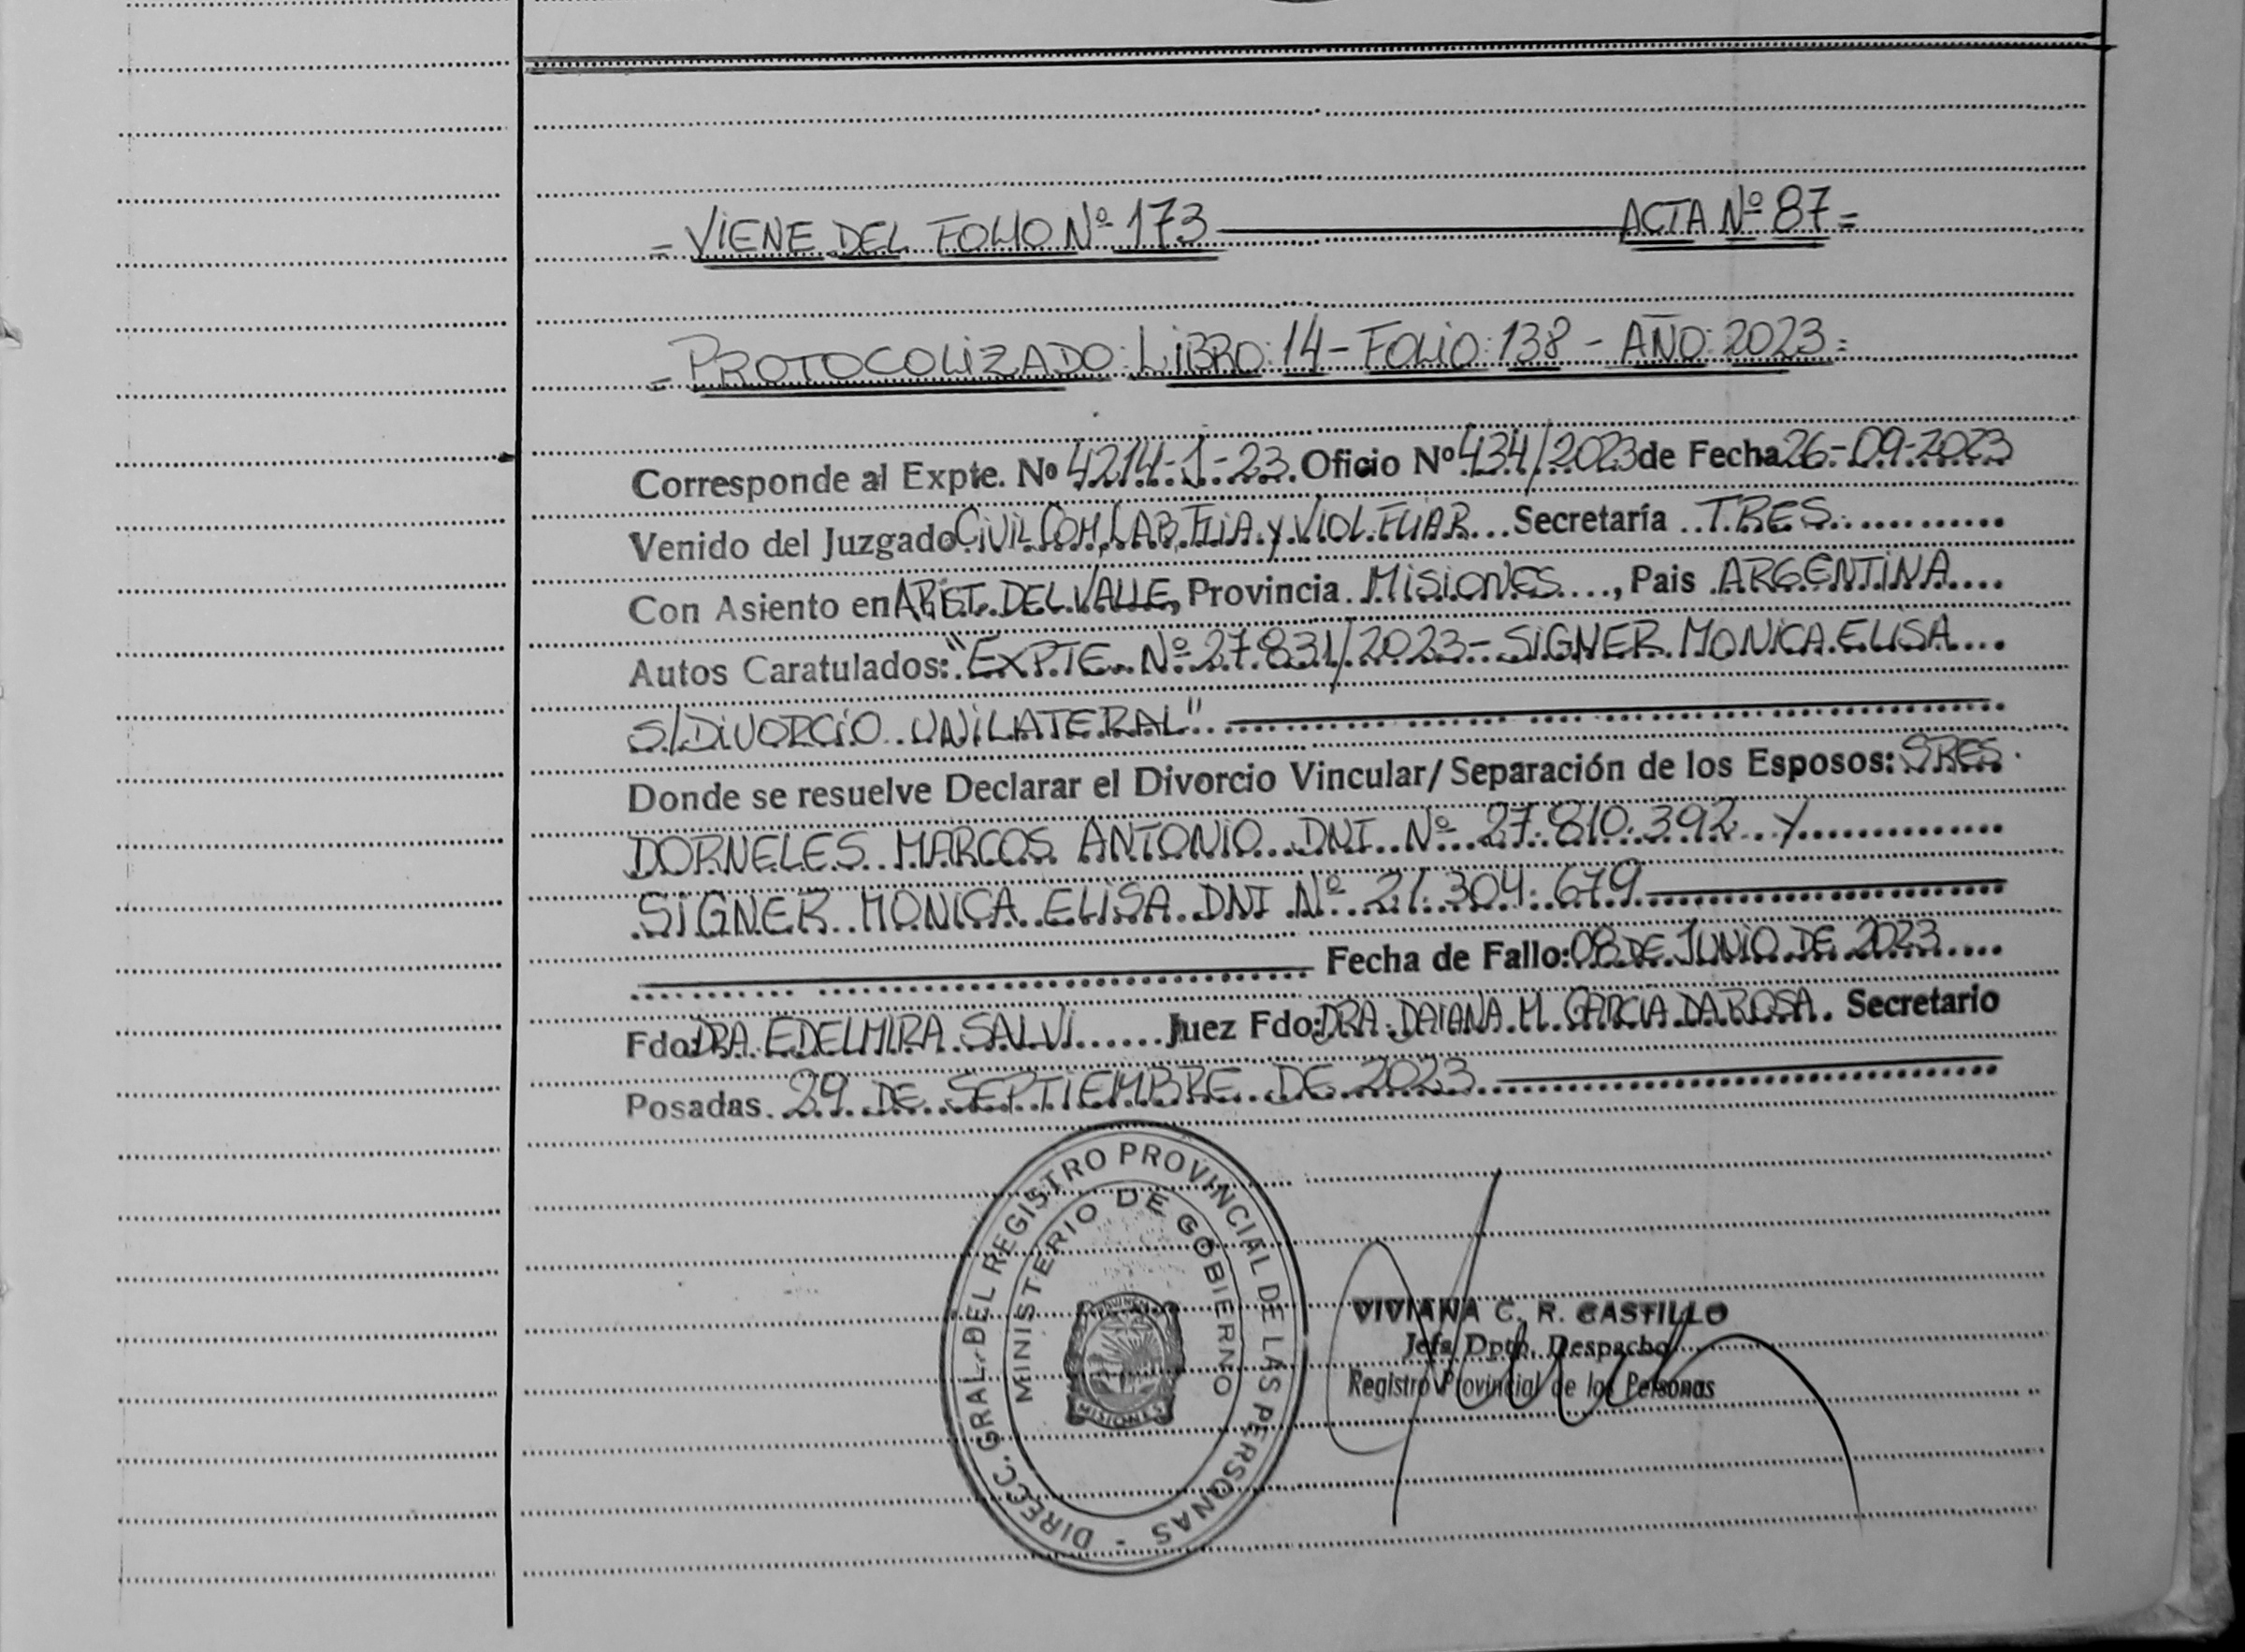 = VIENE DEL FOLIO Nº 173 ACTA Nº 87 =
= PROTOCOLIZADO: LIBRO: 14 - FOLIO: 138 - AÑO: 2023 =
Corresponde al Expte. Nº 4214-J-23. Oficio Nº 434/2023 de Fecha 26-09-2023
Venido del Juzgado CIVIL, COM, LAB, FLIA. y VIOL. FLIAR... Secretaría .TRES...
Con Asiento en ARIST. DEL VALLE, Provincia. MISIONES...., Pais ARGENTINA....
Autos Caratulados: "EXPTE. Nº 27.831/2023 - SIGNER MONICA ELISA...
S/DIVORCIO UNILATERAL"
Donde se resuelve Declarar el Divorcio Vincular/Separación de los Esposos: SRES.
DORNELES MARCOS ANTONIO DNI Nº 27.810.392 Y
SIGNER MONICA ELISA DNI Nº 21.304.679
Fecha de Fallo: 08 DE JUNIO DE 2023
Fdo: DRA. EDELMIRA SALVI...... Juez Fdo: DRA. DAIANA M. GARCIA DA ROSA. Secretario
Posadas. 29 DE SEPTIEMBRE DE 2023
DIRECC. GRAL. DEL REGISTRO PROVINCIAL DE LAS PERSONAS -
MINISTERIO DE GOBIERNO
MISIONES
VIVIANA C. R. CASTILLO
Jefa Dpto. Despacho
Registro Provincial de las Personas